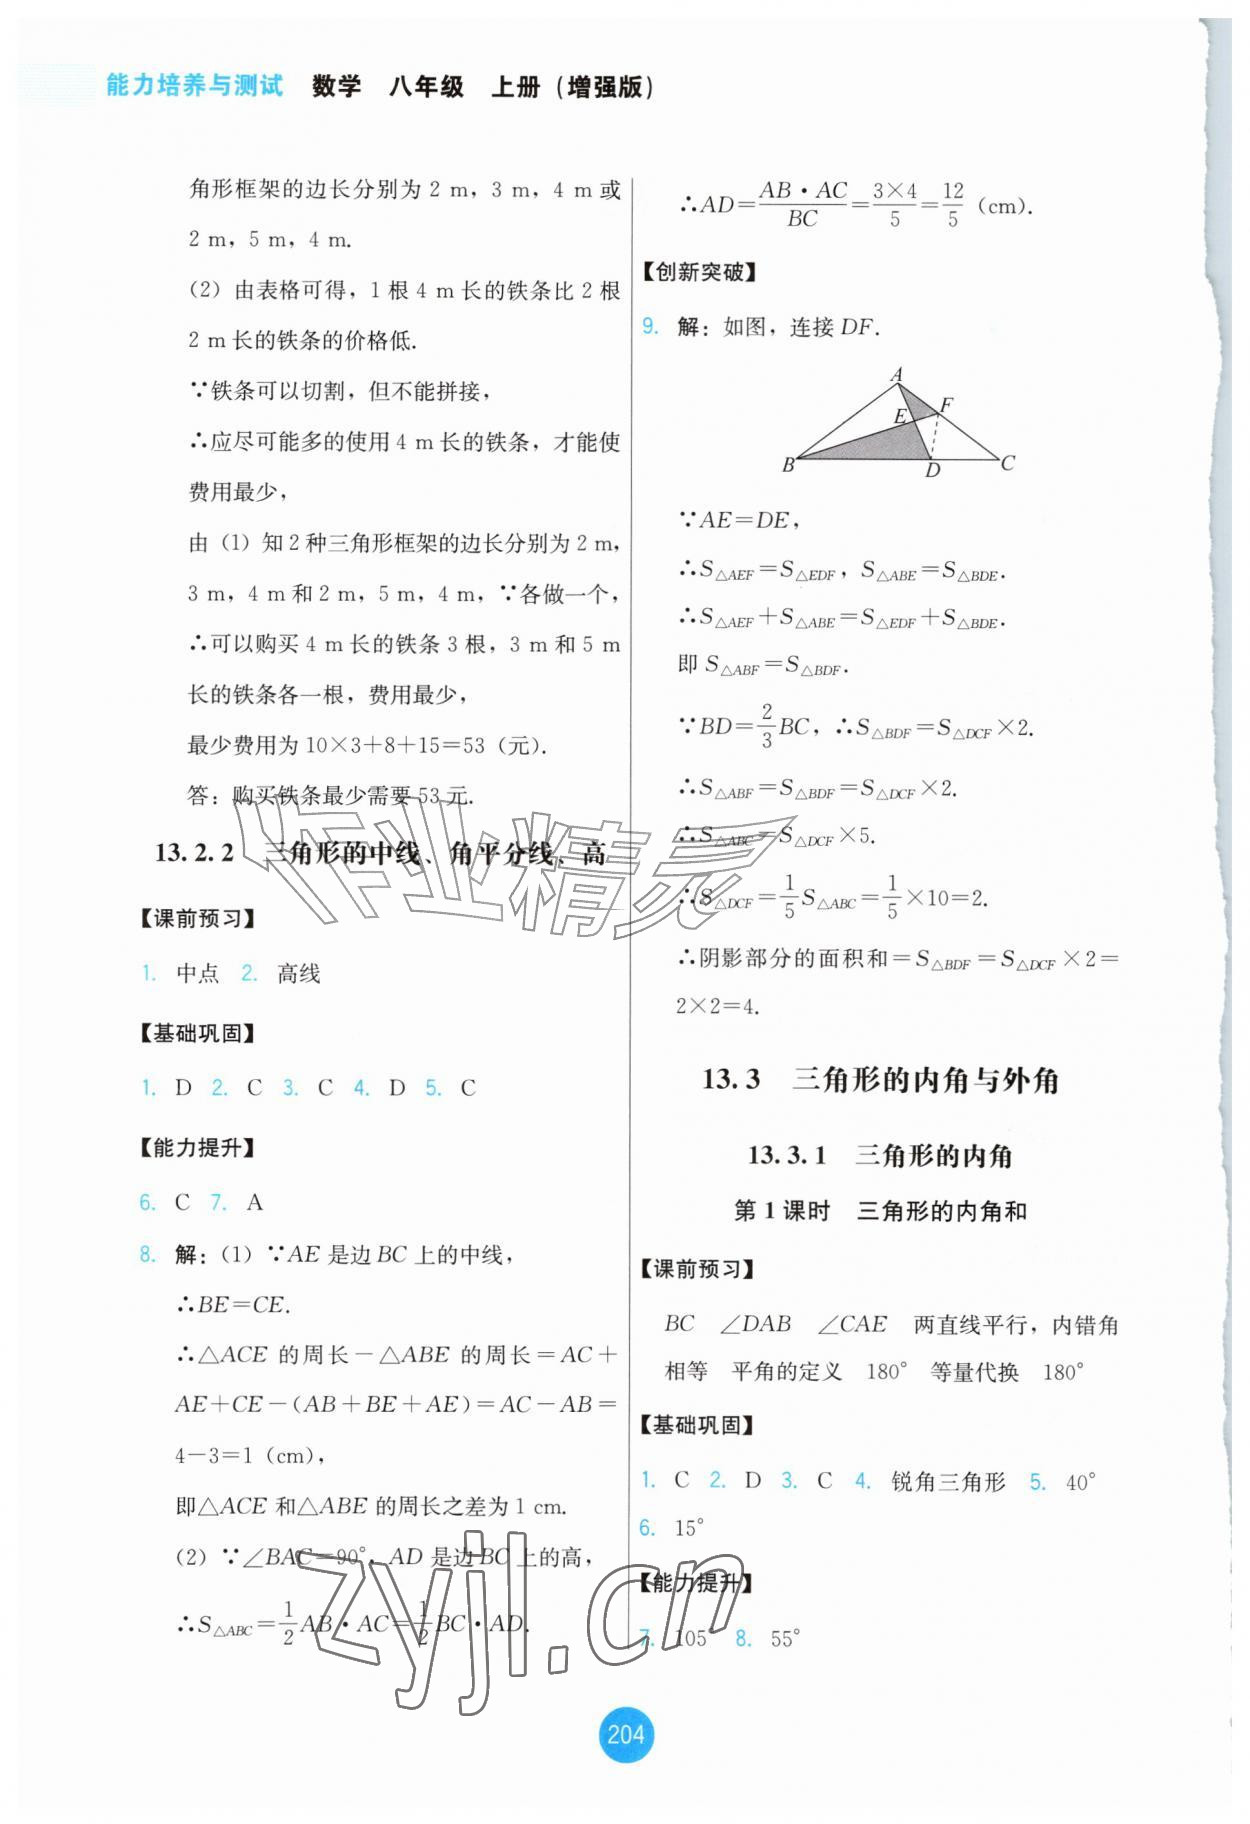 能力培养与测试 数学 八年级 上册(增强版)
角形框架的边长分别为 2 m,3 m,4 m 或
2 m,5 m,4 m.
(2) 由表格可得,1 根 4 m 长的铁条比 2 根
2 m 长的铁条的价格低.
∵铁条可以切割,但不能拼接,
∴应尽可能多的使用 4 m 长的铁条,才能使
费用最少,
由 (1) 知 2 种三角形框架的边长分别为 2 m,
3 m,4 m 和 2 m,5 m,4 m,∵各做一个,
∴可以购买 4 m 长的铁条 3 根,3 m 和 5 m
长的铁条各一根,费用最少,
最少费用为 10×3+8+15=53 (元).
答:购买铁条最少需要 53 元.
13.2.2 三角形的中线、角平分线、高
【课前预习】
1. 中点 2. 高线
【基础巩固】
1. D 2. C 3. C 4. D 5. C
【能力提升】
6. C 7. A
8. 解:(1) ∵AE 是边 BC 上的中线,
∴BE=CE.
∴△ACE 的周长-△ABE 的周长=AC+
AE+CE-(AB+BE+AE)=AC-AB=
4-3=1 (cm),
即△ACE 和△ABE 的周长之差为 1 cm.
(2) ∵∠BAC=90°,AD 是边 BC 上的高,
∴S△ABC=1/2 AB·AC=1/2 BC·AD.
∴AD=AB·AC/BC=3×4/5=12/5 (cm).
【创新突破】
9. 解:如图,连接 DF.
A
E F
B D C
∵AE=DE,
∴S△AEF=S△EDF,S△ABE=S△BDE.
∴S△AEF+S△ABE=S△EDF+S△BDE.
即 S△ABF=S△BDF.
∵BD=2/3 BC,∴S△BDF=S△DCF×2.
∴S△ABF=S△BDF=S△DCF×2.
∴S△ABC=S△DCF×5.
∴S△DCF=1/5 S△ABC=1/5×10=2.
∴阴影部分的面积和=S△BDF=S△DCF×2=
2×2=4.
13.3 三角形的内角与外角
13.3.1 三角形的内角
第 1 课时 三角形的内角和
【课前预习】
BC ∠DAB ∠CAE 两直线平行,内错角
相等 平角的定义 180° 等量代换 180°
【基础巩固】
1. C 2. D 3. C 4. 锐角三角形 5. 40°
6. 15°
【能力提升】
7. 105° 8. 55°
作业精灵
zyjl.cn
204